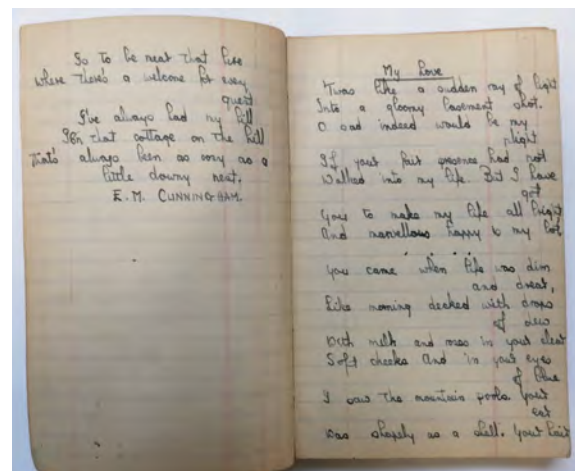 So to be near that fire
where there's a welcome for every
guest
I've always had my fill
In that cottage on the hill
that's always been as cosy as a
little downy nest.
E. M. CUNNINGHAM.
My Love
'Twas like a sudden ray of light
Into a gloomy basement shot.
O sad indeed would be my
plight
If your fair presence had not
Walked into my life. But I have
got
You to make my life all bright
And marvellous happy is my lot.
You came when life was dim
and drear,
Like morning decked with drops
of dew
With milk and roses in your clear
Soft cheeks and in your eyes
of blue
I saw the mountain pools. Your
ear
Was shapely as a shell. Your hair